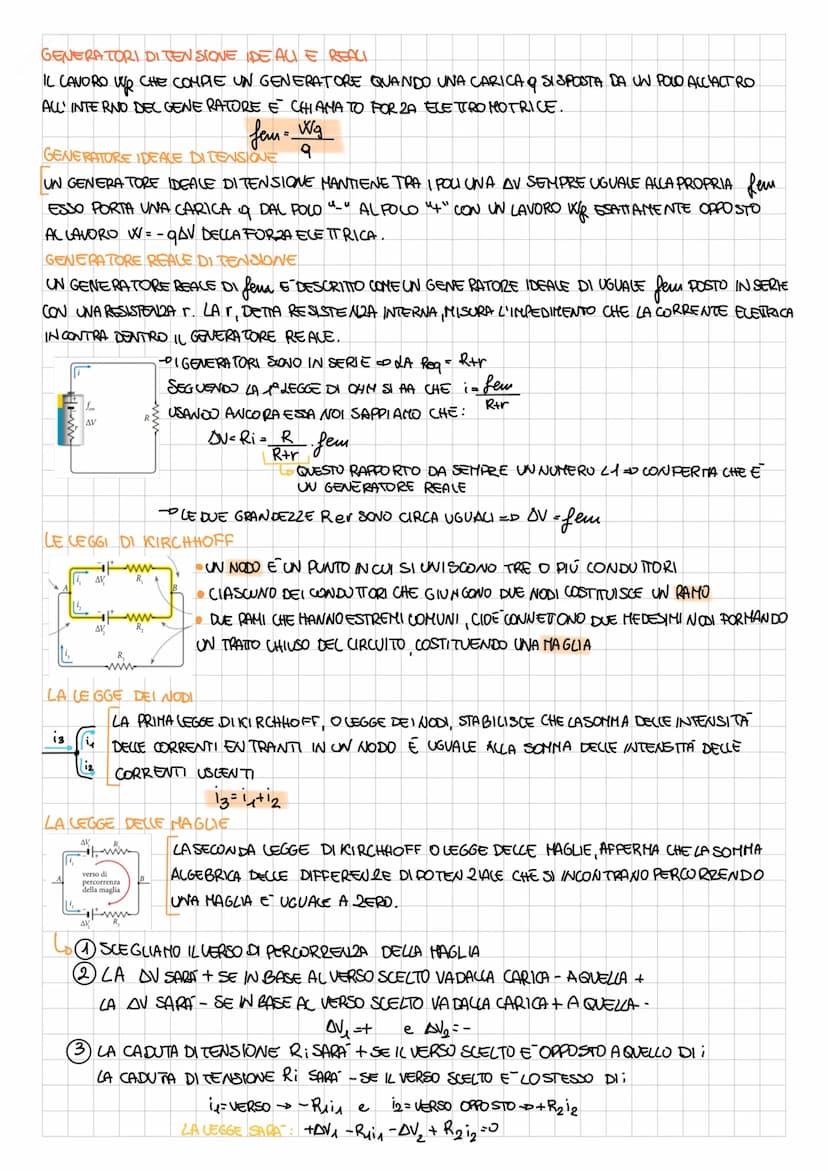 GENERATORI DI TENSIONE IDEALI E REALI
IL LAVORO Wg CHE COMPIE UN GENERATORE QUANDO UNA CARICA q SI SPOSTA DA UN POLO ALL'ALTRO
ALL'INTERNO DEL GENERATORE È CHIAMATO FORZA ELETTROMOTRICE.
fem = Wg/q
GENERATORE IDEALE DI TENSIONE
UN GENERATORE IDEALE DI TENSIONE MANTIENE TRA I POLI UNA ΔV SEMPRE UGUALE ALLA PROPRIA fem
ESSO PORTA UNA CARICA q DAL POLO "-" AL POLO "+" CON UN LAVORO Wg ESATTAMENTE OPPOSTO
AL LAVORO W = -qΔV DELLA FORZA ELETTRICA.
GENERATORE REALE DI TENSIONE
UN GENERATORE REALE DI fem È DESCRITTO COME UN GENERATORE IDEALE DI UGUALE fem POSTO IN SERIE
CON UNA RESISTENZA r. LA r, DETTA RESISTENZA INTERNA, MISURA L'IMPEDIMENTO CHE LA CORRENTE ELETTRICA
INCONTRA DENTRO IL GENERATORE REALE.
→ I GENERATORI SONO IN SERIE ⇒ LA Req = R+r
SEGUENDO LA 1ª LEGGE DI OHM SI HA CHE i = fem/R+r
USANDO ANCORA ESSA NOI SAPPIAMO CHE:
ΔV = Ri = R/R+r · fem
QUESTO RAPPORTO DA SEMPRE UN NUMERO <1 ⇒ CONFERMA CHE È
UN GENERATORE REALE
i
fem
ΔV
r
R
→ LE DUE GRANDEZZE R e r SONO CIRCA UGUALI ⇒ ΔV = fem
LE LEGGI DI KIRCHHOFF
• UN NODO È UN PUNTO IN CUI SI UNISCONO TRE O PIÚ CONDUTTORI
• CIASCUNO DEI CONDUTTORI CHE GIUNGONO DUE NODI COSTITUISCE UN RAMO
• DUE RAMI CHE HANNO ESTREMI COMUNI, CIOÈ CONNETTONO DUE MEDESIMI NODI FORMANDO
UN TRATTO CHIUSO DEL CIRCUITO, COSTITUENDO UNA MAGLIA
i₁ ΔV₁ R₁
A B
i₂
ΔV₂ R₂
i₃ R₃
LA LEGGE DEI NODI
LA PRIMA LEGGE DI KIRCHHOFF, O LEGGE DEI NODI, STABILISCE CHE LA SOMMA DELLE INTENSITÀ
DELLE CORRENTI ENTRANTI IN UN NODO È UGUALE ALLA SOMMA DELLE INTENSITÀ DELLE
CORRENTI USCENTI
i3 i1
i2
i3 = i1 + i2
LA LEGGE DELLE MAGLIE
LA SECONDA LEGGE DI KIRCHHOFF O LEGGE DELLE MAGLIE, AFFERMA CHE LA SOMMA
ALGEBRICA DELLE DIFFERENZE DI POTENZIALE CHE SI INCONTRANO PERCORRENDO
UNA MAGLIA È UGUALE A ZERO.
ΔV₁ R₁
i₁
A verso di B
percorrenza
della maglia
i₂
ΔV₂ R₂
① SCEGLIAMO IL VERSO DI PERCORRENZA DELLA MAGLIA
② LA ΔV SARÀ + SE IN BASE AL VERSO SCELTO VA DALLA CARICA - A QUELLA +
LA ΔV SARÀ - SE IN BASE AL VERSO SCELTO VA DALLA CARICA + A QUELLA -
ΔV1 = + e ΔV2 = -
③ LA CADUTA DI TENSIONE Ri SARÀ + SE IL VERSO SCELTO È OPPOSTO A QUELLO DI i
LA CADUTA DI TENSIONE Ri SARÀ - SE IL VERSO SCELTO È LO STESSO DI i
i1 = VERSO → -R1i1 e i2 = VERSO OPPOSTO → +R2i2
LA LEGGE SARÀ: +ΔV1 -R1i1 -ΔV2 + R2i2 = 0